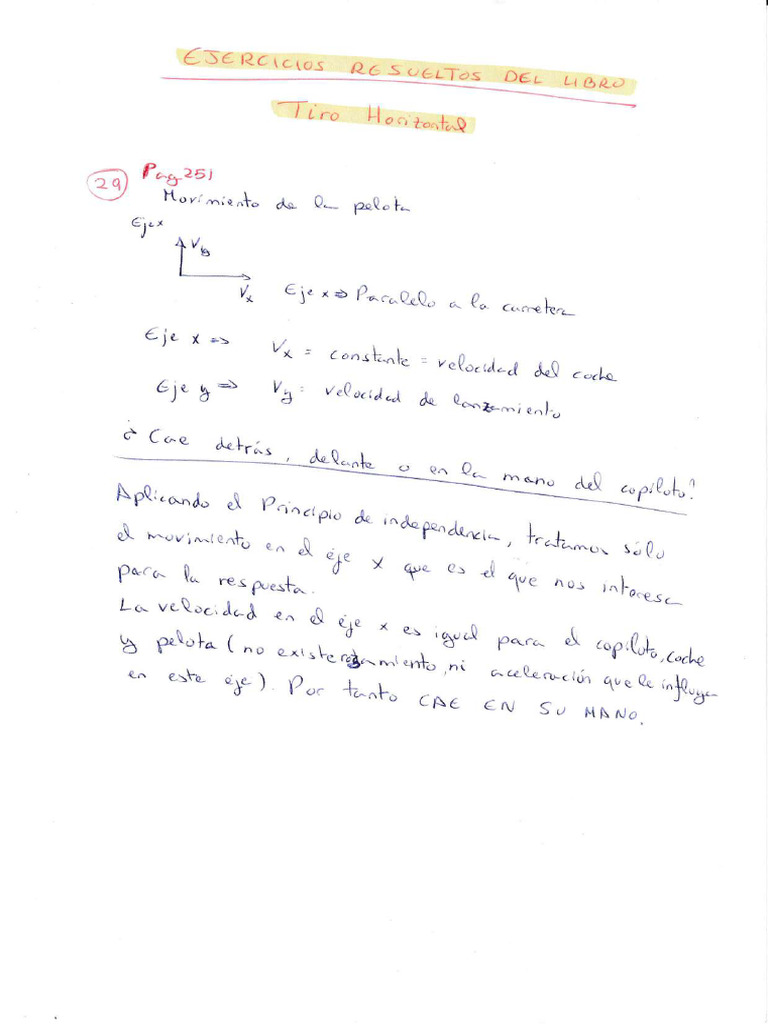 EJERCICIOS RESUELTOS DEL LIBRO
Tiro Horizontal
29 Pag 251
Movimiento de la pelota
Eje x
Vy
Vx Eje x => Paralelo a la carretera
Eje x => Vx = constante = velocidad del coche
Eje y => Vy : velocidad de lanzamiento
¿ Cae detrás, delante o en la mano del copiloto?
Aplicando el Principio de independencia, tratamos sólo
el movimiento en el éje x que es el que nos interesa
para la respuesta.
La velocidad en el éje x es igual para el copiloto, coche
y pelota (no existe rozamiento, ni aceleración que le influya
en este éje). Por tanto CAE EN SU MANO.